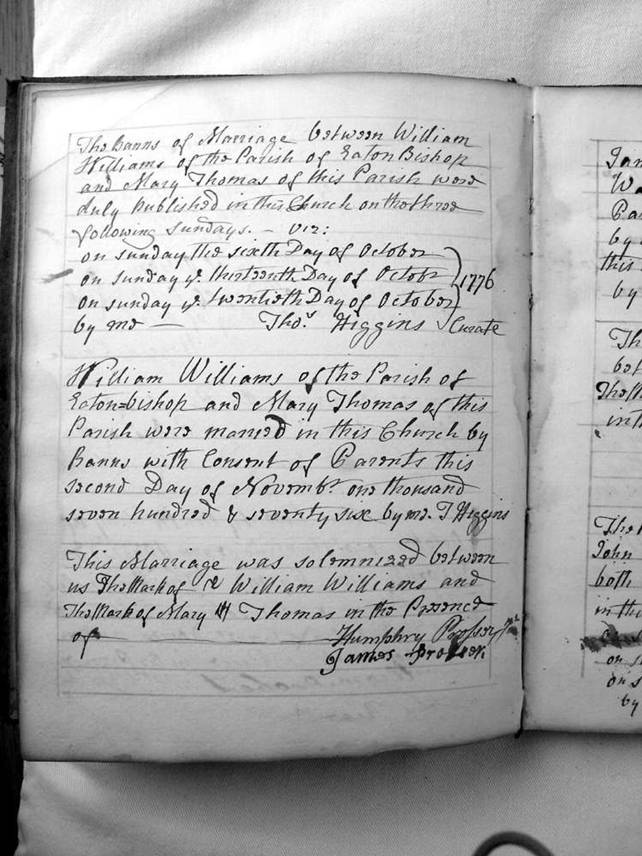 The Banns of Marriage between William
Williams of the Parish of Eaton Bishop
and Mary Thomas of this Parish were
duly Published in this Church on the three
following Sundays. – viz:
on sunday the sixth Day of October
on sunday ye. thirteenth Day of Octobr
on sunday ye. twentieth Day of October
1776
by me — Thos. Higgins Curate
William Williams of the Parish of
Eaton=bishop and Mary Thomas of this
Parish were married in this Church by
Banns with Consent of Parents this
second Day of Novembr. one thousand
seven hundred & seventy six by me. T Higgins
This Marriage was solemnized between
us The Mark of William Williams and
The Mark of Mary Thomas in the Presence
of — Humphry Prosser
James Prosser.
by
this
by
The
in th
John
both
in this
on s
on s
by